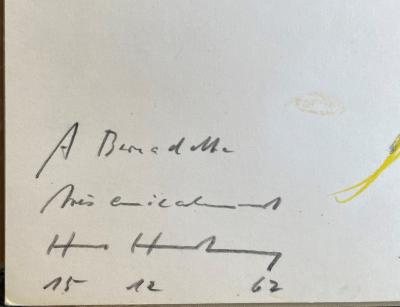 A Bernadette
très amicalement
Hans Hartung
15 12 62